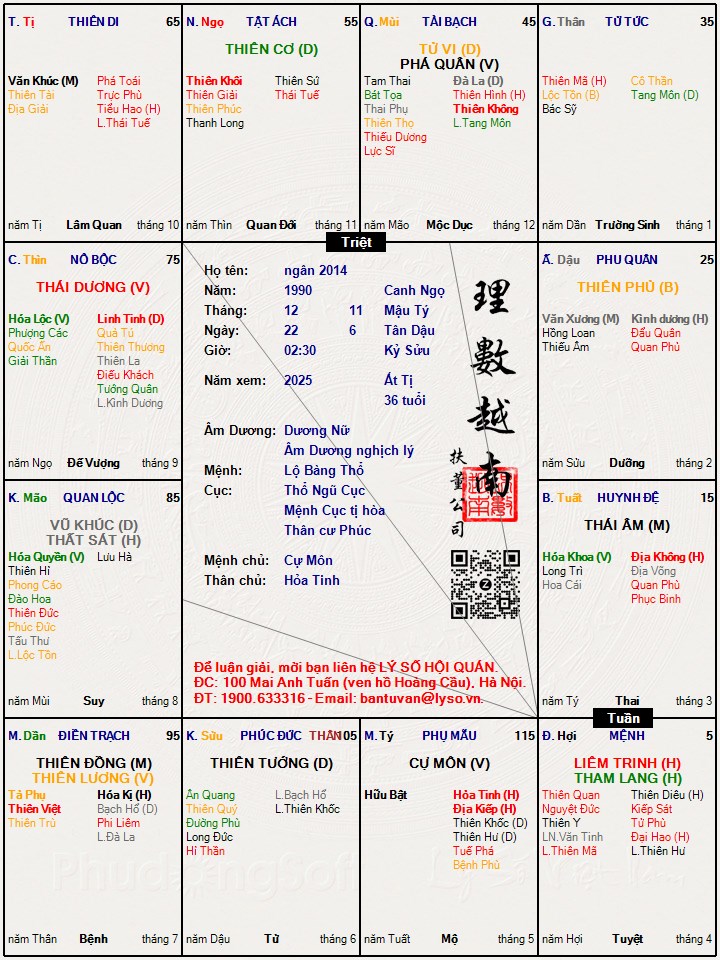 T. Tị THIÊN DI 65
Văn Khúc (M) Phá Toái
Thiên Tài Trực Phù
Địa Giải Tiểu Hao (H)
L.Thái Tuế
năm Tị Lâm Quan tháng 10
N. Ngọ TẬT ÁCH 55
THIÊN CƠ (D)
Thiên Khôi Thiên Sứ
Thiên Giải Thái Tuế
Thiên Phúc
Thanh Long
năm Thìn Quan Đới tháng 11
Q. Mùi TÀI BẠCH 45
TỬ VI (D)
PHÁ QUÂN (V)
Tam Thai Đà La (D)
Bát Tọa Thiên Hình (H)
Thai Phụ Thiên Không
Thiên Thọ L.Tang Môn
Thiếu Dương
Lực Sĩ
năm Mão Mộc Dục tháng 12
G. Thân TỬ TỨC 35
Thiên Mã (H) Cô Thần
Lộc Tồn (B) Tang Môn (D)
Bác Sỹ
năm Dần Trường Sinh tháng 1
Triệt
C. Thìn NÔ BỘC 75
THÁI DƯƠNG (V)
Hóa Lộc (V) Linh Tinh (D)
Phượng Các Quả Tú
Quốc Ấn Thiên Thương
Giải Thần Thiên La
Điếu Khách
Tướng Quân
L.Kình Dương
năm Ngọ Đế Vượng tháng 9
Họ tên: ngân 2014
Năm: 1990 Canh Ngọ
Tháng: 12 11 Mậu Tý
Ngày: 22 6 Tân Dậu
Giờ: 02:30 Kỷ Sửu
Năm xem: 2025 Ất Tị
36 tuổi
Âm Dương: Dương Nữ
Âm Dương nghịch lý
Mệnh: Lộ Bàng Thổ
Cục: Thổ Ngũ Cục
Mệnh Cục tị hòa
Thân cư Phúc
Mệnh chủ: Cự Môn
Thân chủ: Hỏa Tinh
理數越南
扶董公司
Z
Để luận giải, mời bạn liên hệ LÝ SỐ HỘI QUÁN.
ĐC: 100 Mai Anh Tuấn (ven hồ Hoàng Cầu), Hà Nội.
ĐT: 1900.633316 - Email: bantuvan@lyso.vn.
Ấ. Dậu PHU QUÂN 25
THIÊN PHỦ (B)
Văn Xương (M) Kình dương (H)
Hồng Loan Đẩu Quân
Thiếu Âm Quan Phủ
năm Sửu Dưỡng tháng 2
K. Mão QUAN LỘC 85
VŨ KHÚC (D)
THẤT SÁT (H)
Hóa Quyền (V) Lưu Hà
Thiên Hỉ
Phong Cáo
Đào Hoa
Thiên Đức
Phúc Đức
Tấu Thư
L.Lộc Tồn
năm Mùi Suy tháng 8
B. Tuất HUYNH ĐỆ 15
THÁI ÂM (M)
Hóa Khoa (V) Địa Không (H)
Long Trì Địa Võng
Hoa Cái Quan Phù
Phục Binh
năm Tý Thai tháng 3
Tuần
M. Dần ĐIỀN TRẠCH 95
THIÊN ĐỒNG (M)
THIÊN LƯƠNG (V)
Tả Phụ Hóa Kị (H)
Thiên Việt Bạch Hổ (D)
Thiên Trù Phi Liêm
L.Đà La
năm Thân Bệnh tháng 7
K. Sửu PHÚC ĐỨC THÂN 105
THIÊN TƯỚNG (D)
Ân Quang L.Bạch Hổ
Thiên Quý L.Thiên Khốc
Đường Phù
Long Đức
Hỉ Thần
năm Dậu Tử tháng 6
M. Tý PHỤ MẪU 115
CỰ MÔN (V)
Hữu Bật Hỏa Tinh (H)
Địa Kiếp (H)
Thiên Khốc (D)
Thiên Hư (D)
Tuế Phá
Bệnh Phù
năm Tuất Mộ tháng 5
Đ. Hợi MỆNH 5
LIÊM TRINH (H)
THAM LANG (H)
Thiên Quan Thiên Diêu (H)
Nguyệt Đức Kiếp Sát
Thiên Y Tử Phù
LN.Văn Tinh Đại Hao (H)
L.Thiên Mã L.Thiên Hư
năm Hợi Tuyệt tháng 4